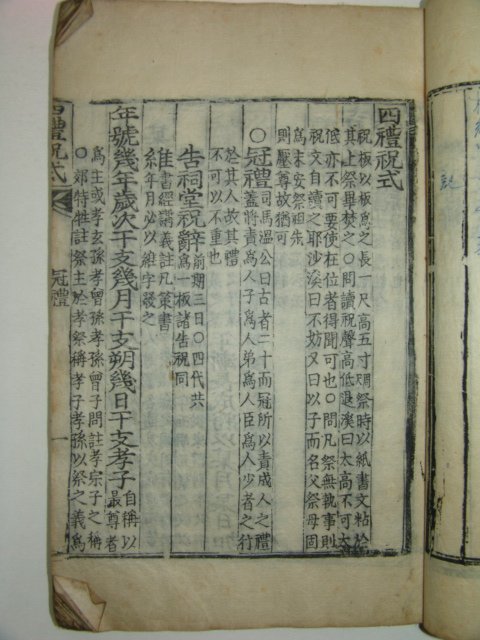 四禮祝式
祝板以板爲之長一尺高五寸期祭時以紙書文粘於
其上祭畢焚之○問讀祝聲高低退溪曰太高不可太
低亦不可要使在位者得聞可也○問凡祭無執事則
祝文自讀之耶沙溪曰不妨又曰以子而名父祭母固
爲未安祭祖先
則壓尊故猶可
○冠禮司馬溫公曰古者二十而冠所以責成人之禮
蓋將責爲人子爲人弟爲人臣爲人少者之行
於其人故其禮
不可以不重也
告祠堂祝辭前期三日○四代共
爲一板諸告祝同
維書經講義註凡策書
維年月必以維字發之
年號幾年歲次干支幾月干支朔幾日干支孝子自稱以
最尊者
爲主或孝玄孫孝曾孫孝孫曾子問註孝宗子之稱
○郊特牲註祭主於孝祭稱孝子孝孫以祭之義爲
四禮祝式
冠禮
一